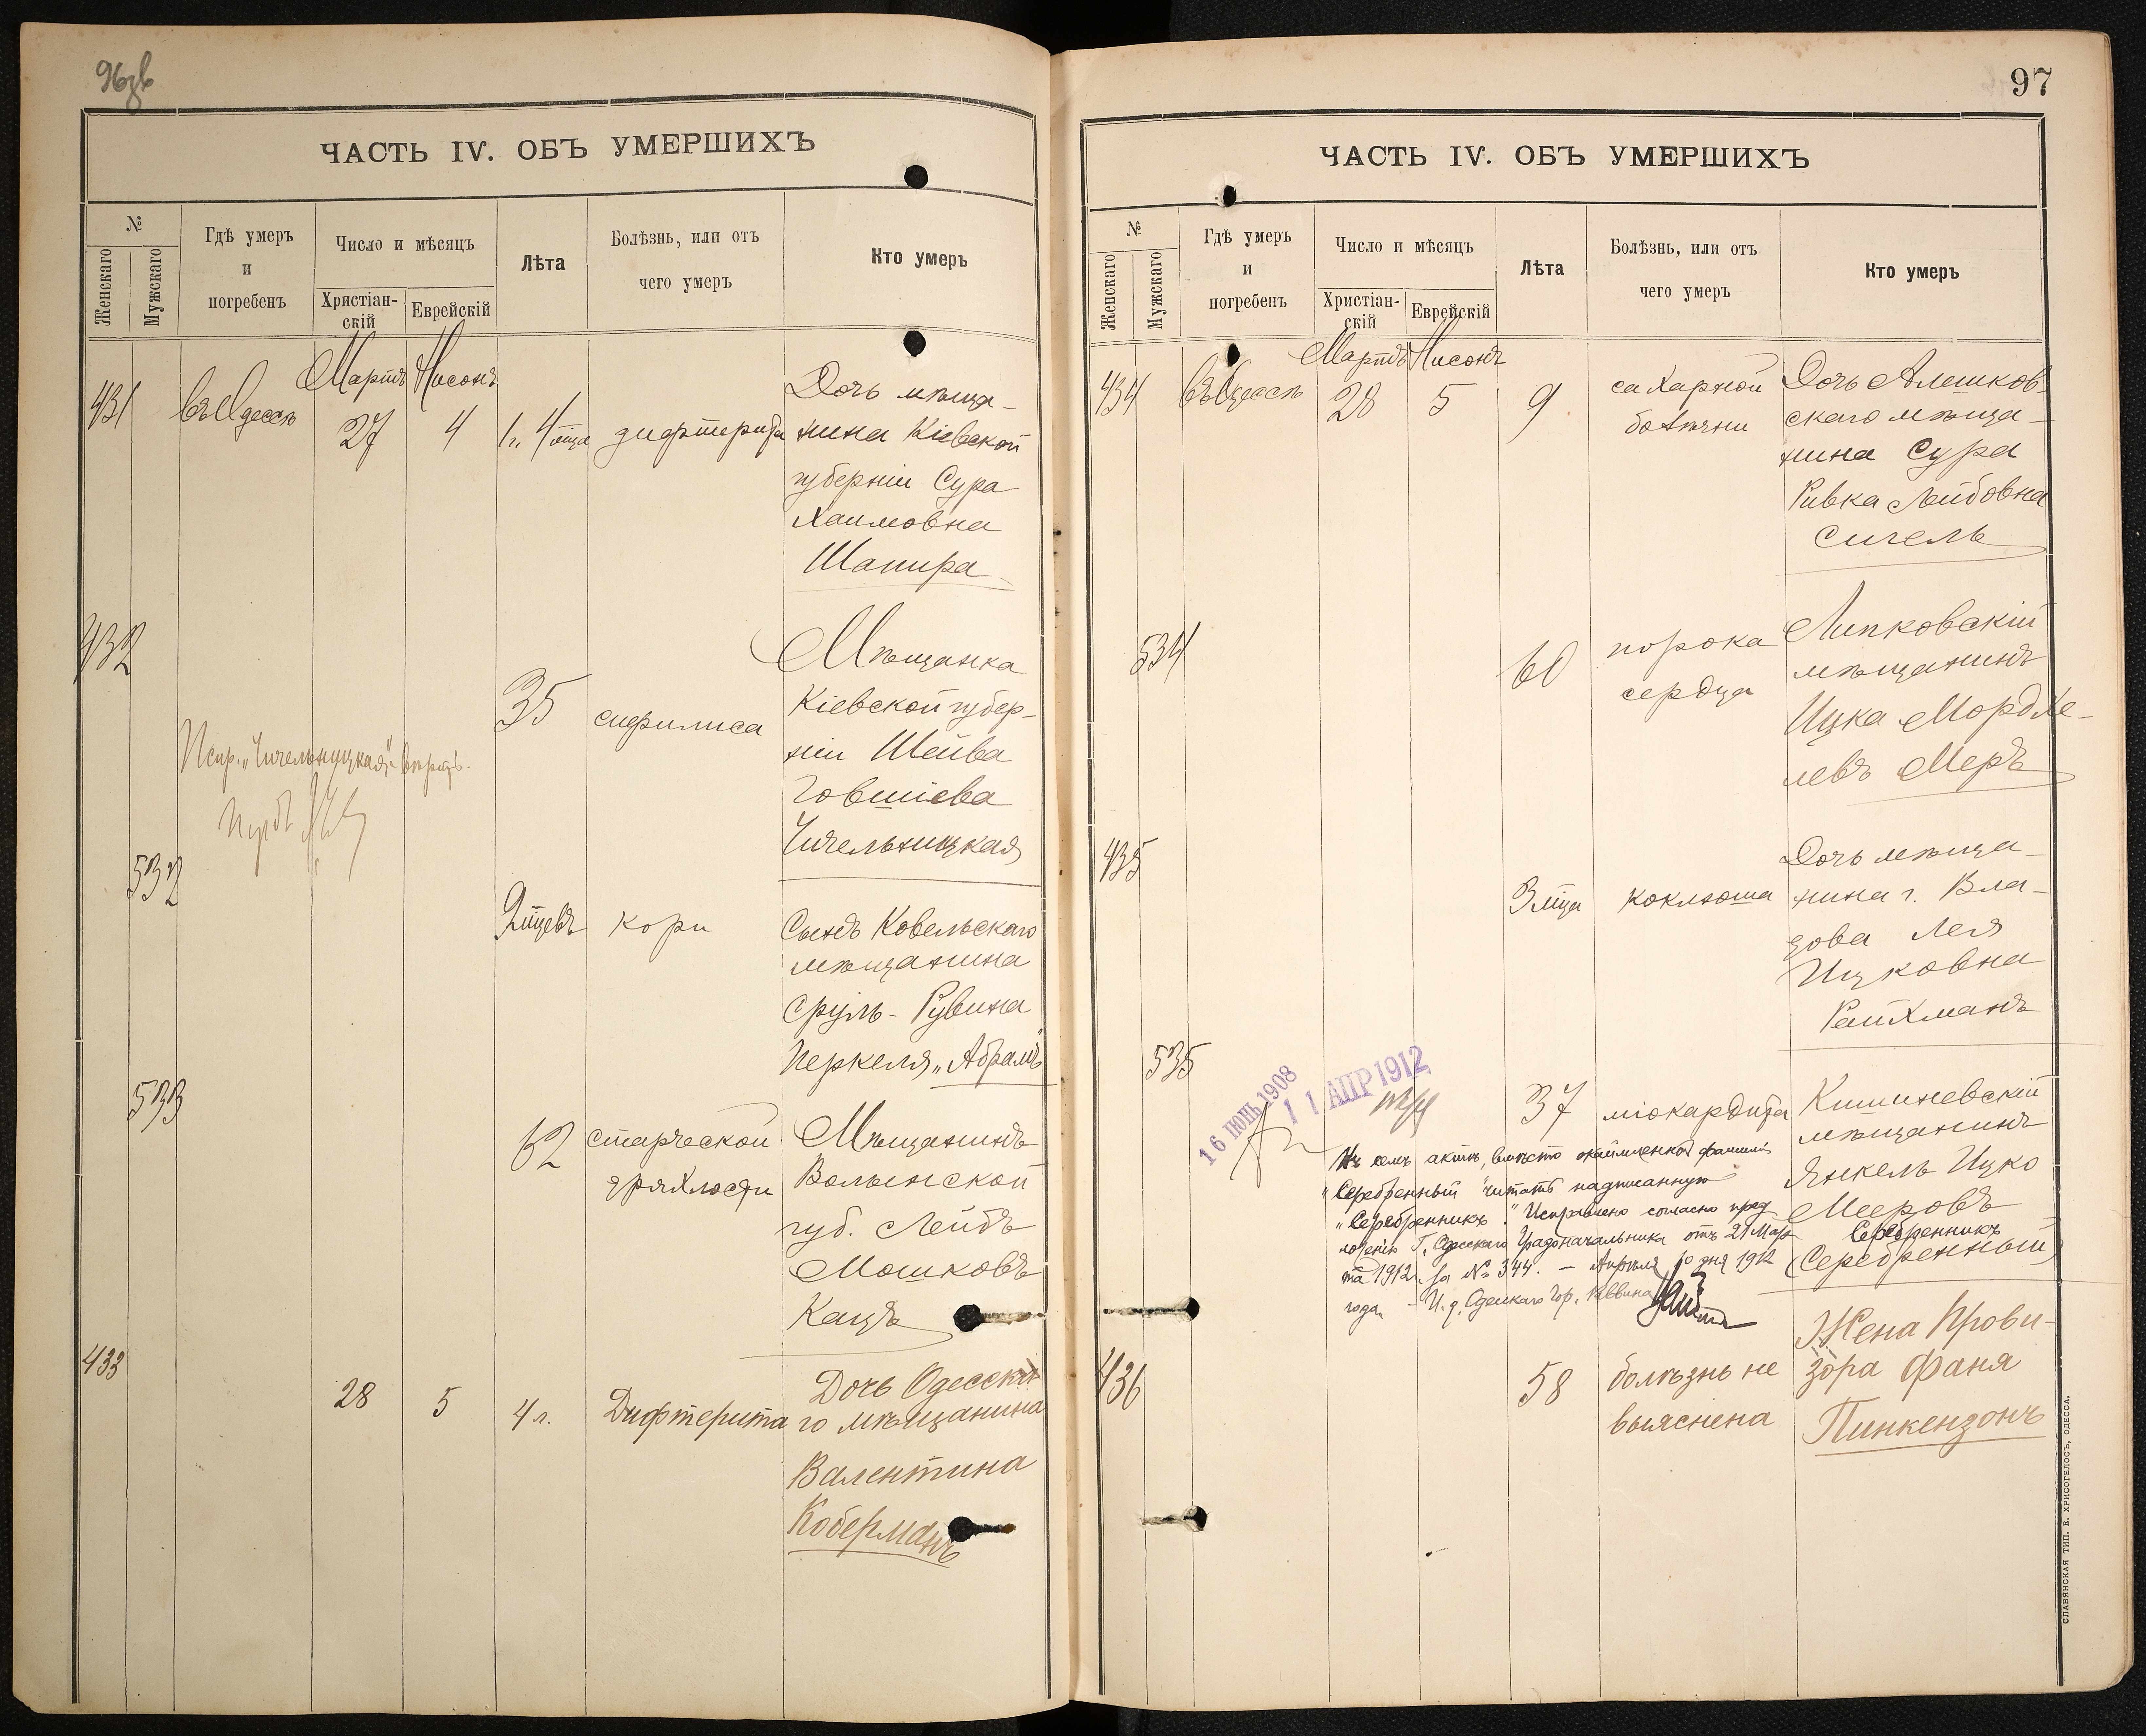 96зв
ЧАСТЬ IV. ОБЪ УМЕРШИХЪ
№
Женскаго
Мужскаго
Гдѣ умеръ
и
погребенъ
Число и мѣсяцъ
Христіан-
скій
Еврейскій
Лѣта
Болѣзнь, или отъ
чего умеръ
Кто умеръ
Мартъ Нисонъ
431 въ Одессѣ 27 4 1 г. 4 мѣс дифтерита
Дочь мѣща-
нина Кіевской
губерніи Сура
Хаимовна
Шапира
432
35 сифилиса
Мѣщанка
Кіевской губер-
ніи Шейва
Говшіева
Чичельницкая
Испр. „Чичельницкая“ вѣрно.
532
9 мцевъ кори
Сынъ Ковельскаго
мѣщанина
Сруль-Рувина
Перкеля „Абрамъ“
533
62 старческой
дряхлости
Мѣщанинъ
Волынской
губ. Лейбъ
Мошковъ
Кацъ
433
28 5 4 л. Дифтерита
Дочь Одесска-
го мѣщанина
Валентина
Коберманъ
97
ЧАСТЬ IV. ОБЪ УМЕРШИХЪ
№
Женскаго
Мужскаго
Гдѣ умеръ
и
погребенъ
Число и мѣсяцъ
Христіан-
скій
Еврейскій
Лѣта
Болѣзнь, или отъ
чего умеръ
Кто умеръ
Мартъ Нисонъ
434 въ Одессѣ 28 5 9 сахарной
болѣзни
Дочь Алешков-
скаго мѣща-
нина Сура
Ривка Лейбовна
Сигель
534
60 порока
сердца
Липковскій
мѣщанинъ
Ицка Мордхе-
левъ Меръ
435
3 мца коклюша
Дочь мѣща-
нина г. Вла-
дова Лея
Ицковна
Райхманъ
535
16 ІЮНЬ 1908
11 АПР 1912
37 міокардита
Кишиневскій
мѣщанинъ
Янкель Ицко
Меровъ
Серебренникъ
(Серебренный)
Въ семъ актѣ, вмѣсто окаймленной фамиліи
„Серебренный“ читать надписанную
„Серебренникъ“. Исправлено согласно пред
ложенію Г. Одесскаго Градоначальника отъ 21 Мар
та 1912 г. за № 344. – Апрѣля 10 дня 1912
года – И. д. Одесскаго Гор. Раввина
436
58 болѣзнь не
выяснена
Жена Прови-
зора Фаня
Пинкензонъ
СЛАВЯНСКАЯ ТИП. Е. ХРИСОГЕЛОСЪ, ОДЕССА.